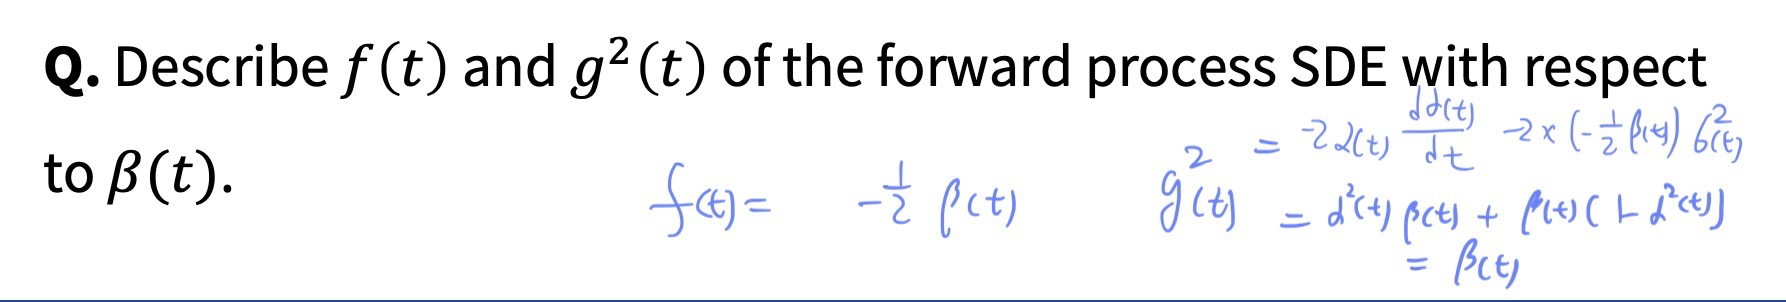 Q. Describe f(t) and g²(t) of the forward process SDE with respect
to β(t).
f(t) = -1/2 β(t)
g²(t) = -2α(t) dα(t)/dt -2×(-1/2 β(t)) σ²(t)
= α²(t) β(t) + β(t)(1-α²(t))
= β(t)